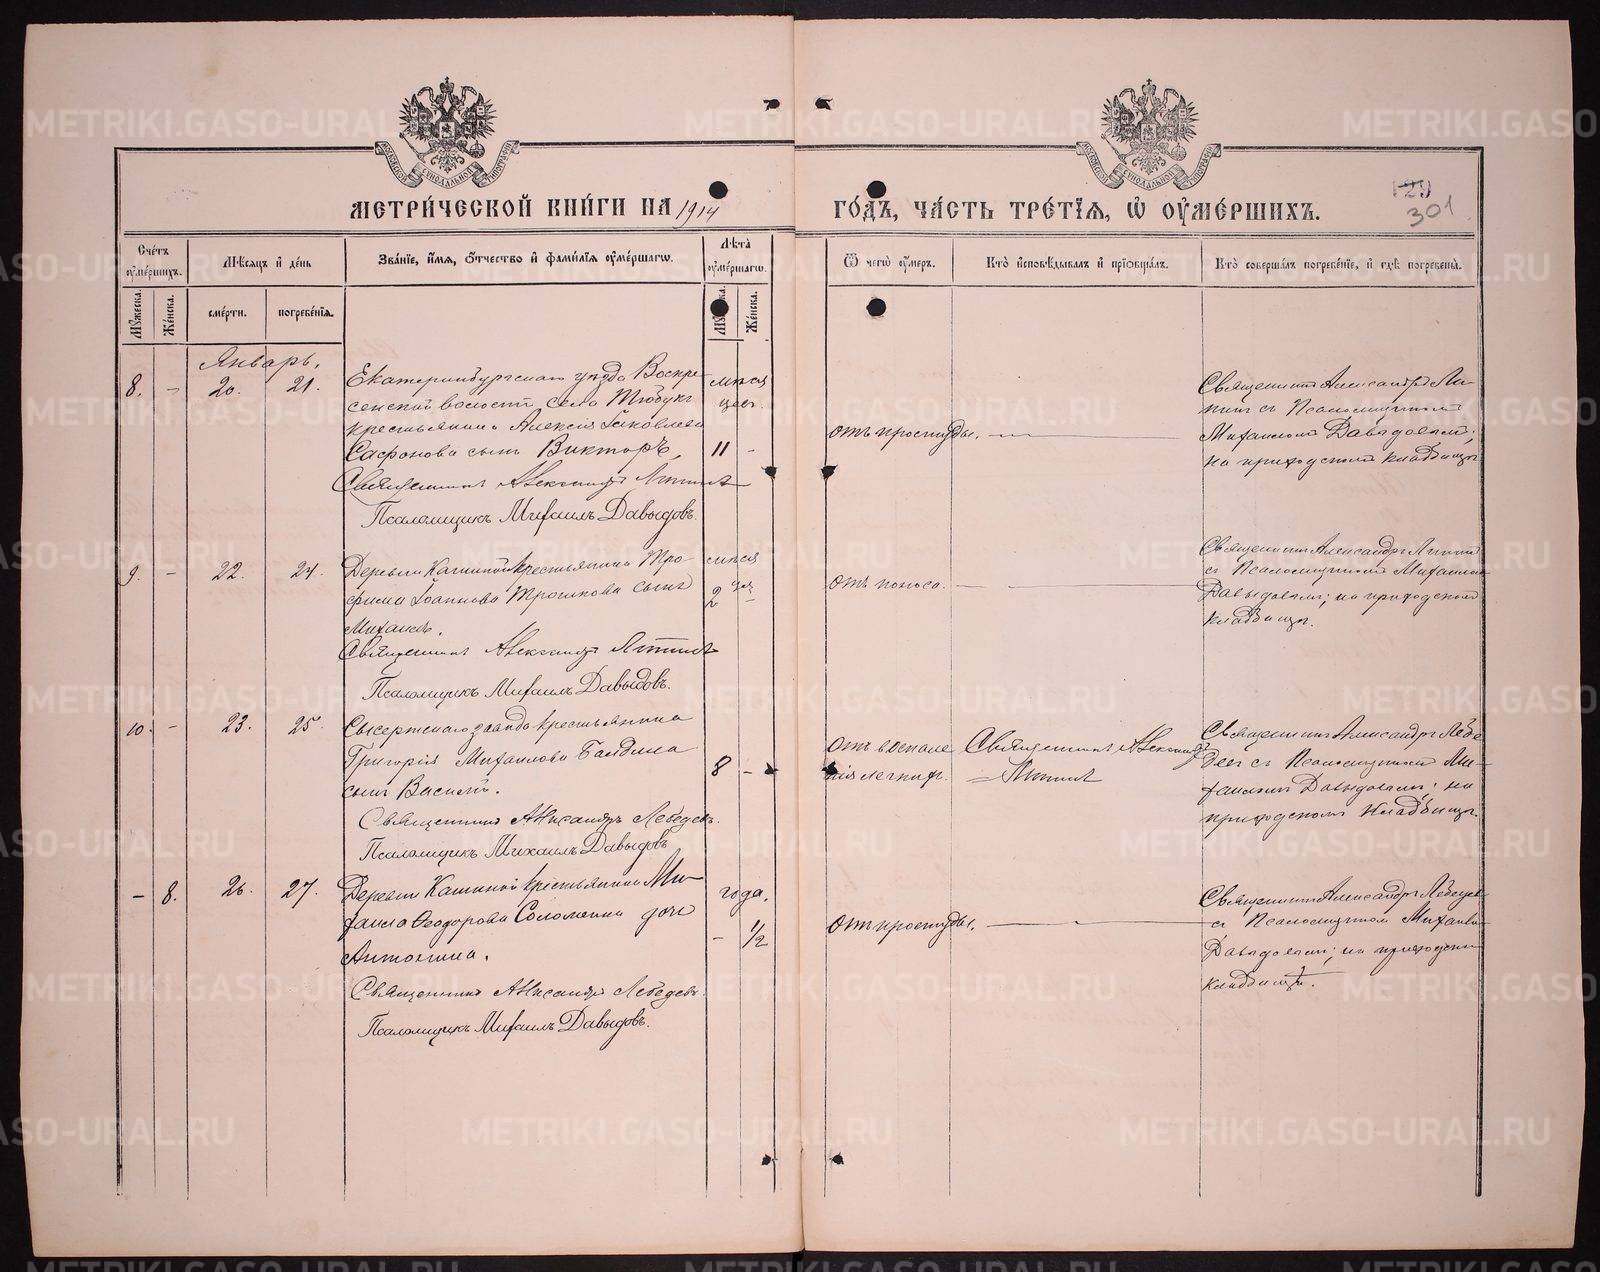 МЕТРИ́ЧЕСКОЙ КНИ́ГИ НА 1914
ГО́ДЪ, ЧА́СТЬ ТРЕ́ТІѦ, Ѡ ОУМЕ́РШИХЪ.
129
301
Сче́тъ оумершихъ.
Мѣсяцъ и день
Зва́ніе, имя, отчество и фамилія оумершагѡ.
Лѣта оумершагѡ.
Ѿ чегѡ оумеръ.
Кто исповѣдывалъ и пріобщалъ.
Кто совершалъ погребеніе, и гдѣ погребены.
Мужеска.
Женска.
смерти.
погребенія.
Женска.
Январь.
8. – 20. 21.
Екатеринбургскаго уѣзда Воскре
сенской волости села Тюбукъ
крестьянина Алексѣя Яковлева
Сафонова сынъ Викторъ,
Священникъ Александръ
Псаломщикъ Михаилъ Давыдовъ.
мѣся
цев.
11 –
отъ простуды. —
Священникъ Александръ
съ Псаломщикомъ
Михаиломъ Давыдовымъ;
на приходскомъ кладбищѣ
9. – 22. 24.
Деревни Кашиной крестьянина Тро
фима Іоаннова Трошкова сынъ
Михаилъ.
Священникъ Александръ
Псаломщикъ Михаилъ Давыдовъ.
мѣся
2 –
отъ поноса. —
Священникъ Александръ
съ Псаломщикомъ Михаиломъ
Давыдовымъ; на приходскомъ
кладбищѣ.
10. – 23. 25.
Сысертскаго завода крестьянина
Григорія Михаилова
сынъ Василій.
Священникъ Александръ Лебедевъ.
Псаломщикъ Михаилъ Давыдовъ
8 –
Отъ воспале
нія легкихъ.
Священникъ Александръ
Священникъ Александръ Лебе
девъ съ Псаломщикомъ Ми-
хаиломъ Давыдовымъ; на
приходскомъ кладбищѣ.
– 8. 26. 27.
Деревни Кашиной крестьянина Ми-
хаила Ѳеодорова Соломеина дочь
Антонина.
Священникъ Александръ Лебедевъ.
Псаломщикъ Михаилъ Давыдовъ.
года.
– 1/2
Отъ простуды. —
Священникъ Александръ Лебедевъ
съ Псаломщикомъ Михаиломъ
Давыдовымъ; на приходскомъ
кладбищѣ.
METRIKI.GASO-URAL.RU